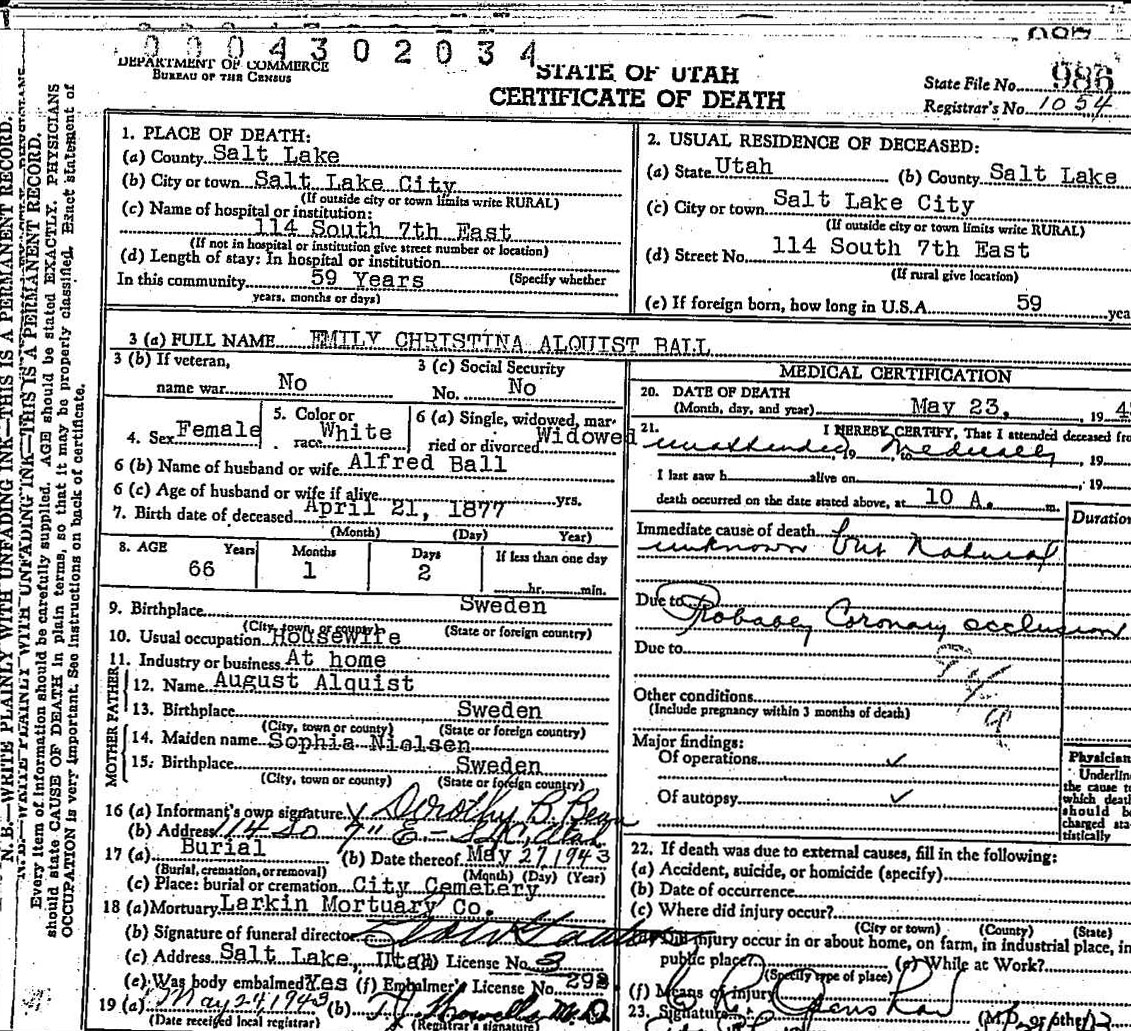 0004302034
DEPARTMENT OF COMMERCE
BUREAU OF THE CENSUS
STATE OF UTAH
CERTIFICATE OF DEATH
State File No. 986
Registrar's No. 1054
N. B.—WRITE PLAINLY WITH UNFADING INK—THIS IS A PERMANENT RECORD.
Every item of information should be carefully supplied. AGE should be stated EXACTLY. PHYSICIANS
should state CAUSE OF DEATH in plain terms, so that it may be properly classified. Exact statement of
OCCUPATION is very important. See instructions on back of certificate.
1. PLACE OF DEATH:
(a) County Salt Lake
(b) City or town Salt Lake City
(If outside city or town limits write RURAL)
(c) Name of hospital or institution:
114 South 7th East
(If not in hospital or institution give street number or location)
(d) Length of stay: In hospital or institution
In this community 59 Years (Specify whether
years, months or days)
2. USUAL RESIDENCE OF DECEASED:
(a) State Utah (b) County Salt Lake
(c) City or town Salt Lake City
(If outside city or town limits write RURAL)
(d) Street No. 114 South 7th East
(If rural give location)
(e) If foreign born, how long in U.S.A 59 yea
3 (a) FULL NAME EMILY CHRISTINA ALQUIST BALL
3 (b) If veteran,
name war No
3 (c) Social Security
No. No
4. Sex Female
5. Color or
race White
6 (a) Single, widowed, mar-
ried or divorced Widowed
6 (b) Name of husband or wife Alfred Ball
6 (c) Age of husband or wife if alive yrs.
7. Birth date of deceased April 21, 1877
(Month) (Day) Year)
8. AGE Years Months Days If less than one day
66 1 2 hr. min.
9. Birthplace Sweden
(City, town or county) (State or foreign country)
10. Usual occupation Housewife
11. Industry or business At home
FATHER
12. Name August Alquist
13. Birthplace Sweden
(City, town or county) (State or foreign country)
MOTHER
14. Maiden name Sophia Nielsen
15. Birthplace Sweden
(City, town or county) (State or foreign country)
16 (a) Informant's own signature Dorothy B. Bean
(b) Address 114 So 7" E - S.L.C. Utah
17 (a) Burial (b) Date thereof May 27 1943
(Burial, cremation, or removal) (Month) (Day) (Year)
(c) Place: burial or cremation City Cemetery
18 (a) Mortuary Larkin Mortuary Co.
(b) Signature of funeral director
(c) Address Salt Lake, Utah (d) License No. 3
(e) Was body embalmed Yes (f) Embalmer's License No. 292
19 (a) May 24 1943 (b) M.D
(Date received local registrar) (Registrar's signature)
MEDICAL CERTIFICATION
20. DATE OF DEATH
(Month, day, and year) May 23, 19 4
21. I HEREBY CERTIFY, That I attended deceased fro
unattended, 19 to Medically, 19
I last saw h alive on , 19
death occurred on the date stated above, at 10 A. m.
Duration
Immediate cause of death
unknown but Natural
Due to Probabley Coronary occlusion
Due to
Other conditions
(Include pregnancy within 3 months of death)
Major findings:
Of operations ✓
Of autopsy ✓
Physician
Underline
the cause to
which death
should be
charged sta-
tistically
22. If death was due to external causes, fill in the following:
(a) Accident, suicide, or homicide (specify)
(b) Date of occurrence
(c) Where did injury occur?
(City or town) (County) (State)
Did injury occur in or about home, on farm, in industrial place, in
public place? (e) While at Work?
(Specify type of place)
(f) Means of injury
23. Signature (M.D. or other)